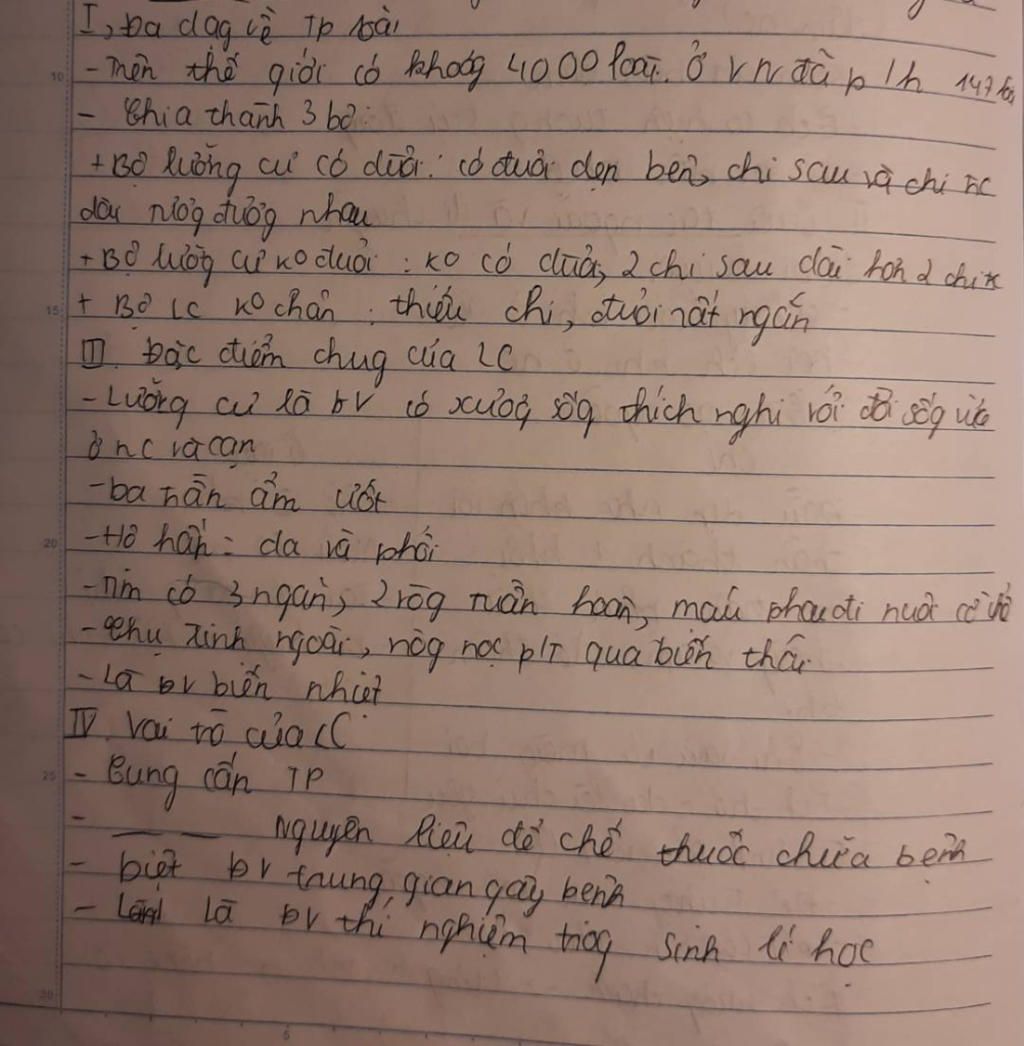 I, Đa dạg về TP loài
- Trên thế giới có khoảg 4000 loài. Ở VN đã p/h 147 loài
- Chia thành 3 bộ:
+ Bộ lưỡng cư có đuôi: có đuôi dẹp bên, chi sau và chi tc
dài tươg đươg nhau
+ Bộ lưỡg cư ko đuôi: ko có đuôi, 2 chi sau dài hơn 2 chi tr
+ Bộ LC ko chân: thiếu chi, đuôi rất ngắn
III. Đặc điểm chug của LC
- Lưỡng cư là ĐV có xươg sốg thích nghi với đời sốg vừa
ở nc và cạn
- Da trần ẩm ướt
- Hô hấp = da và phổi
- Tim có 3 ngăn, 2 vòg tuần hoàn, máu pha đi nuôi cơ thể
- Thụ tinh ngoài, nòg nọc p/T qua biến thái
- Là ĐV biến nhiệt
IV. Vai trò của LC
- Cung cấp TP
- — — nguyên liệu để chế thuốc chữa bệnh
- Diệt ĐV trung gian gây bệnh
- Là ĐV thí nghiệm trog sinh lí học